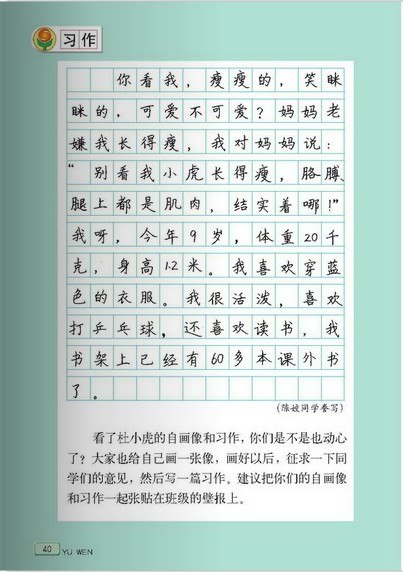 习作
你看我，瘦瘦的，笑眯
眯的，可爱不可爱？妈妈老
嫌我长得瘦，我对妈妈说：
“别看我小虎长得瘦，胳膊、
腿上都是肌肉，结实着哪！”
我呀，今年9岁，体重20千
克，身高1.2米。我喜欢穿蓝
色的衣服。我很活泼，喜欢
打乒乓球，还喜欢读书，我
书架上已经有60多本课外书
了。
(陈姣同学誊写)
看了杜小虎的自画像和习作，你们是不是也动心
了？大家也给自己画一张像，画好以后，征求一下同
学们的意见，然后写一篇习作。建议把你们的自画像
和习作一起张贴在班级的壁报上。
40 YU WEN